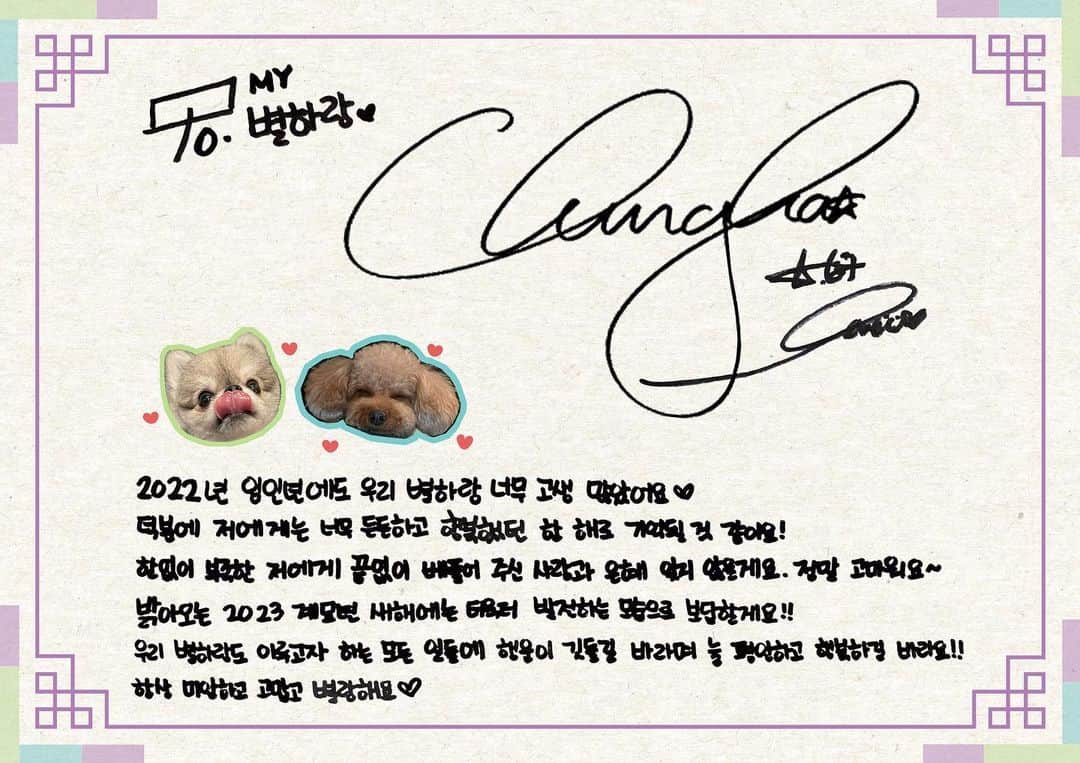 To. MY 별하랑♥
Chungha☆
2022년 임인년에도 우리 별하랑 너무 고생 많았어요♡
덕분에 저에게는 너무 든든하고 행복했던 한 해로 기억될 것 같아요!
한없이 부족한 저에게 끝없이 베풀어 주신 사랑과 은혜 잊지 않을게요. 정말 고마워요~
밝아오는 2023 계묘년 새해에는 더 발전하는 모습으로 보답할게요!!
우리 별하랑도 이루고자 하는 모든 일들에 행운이 깃들길 바라며 늘 평안하고 행복하길 바라요!!
항상 미안하고 고맙고 별랑해요♡